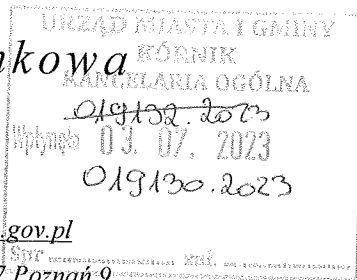 URZĄD MIASTA I GMINY
KÓRNIK
nkowa
KANCELARIA OGÓLNA
019132.2023
Wpłynęło 03. 07. 2023
019130.2023
.gov.pl
Spr. zał.
7 Poznań 9